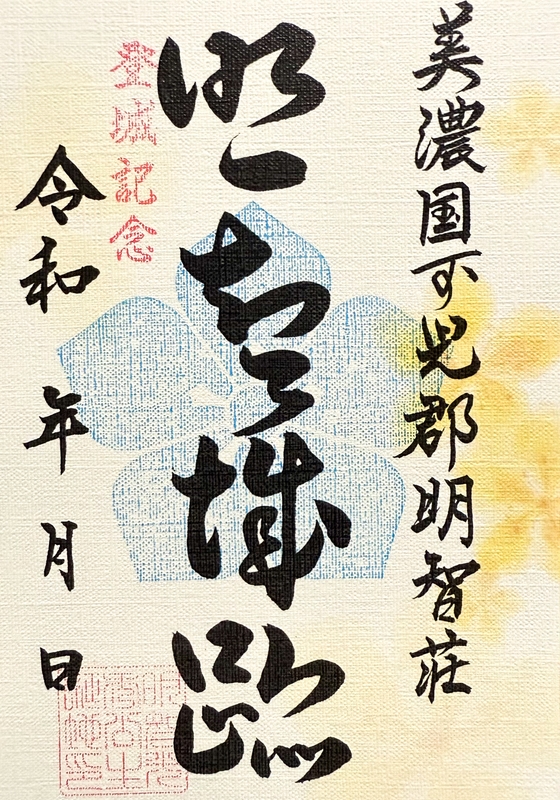 美濃国可児郡明智荘
明智城跡
登城記念
令和 年 月 日